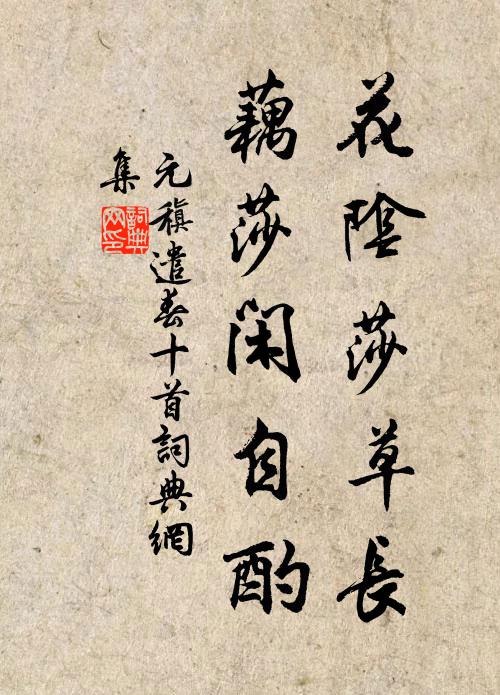 花陰莎草長
藕莎閑自酌
元稹遣春十首詞典網
集
詞典
网印